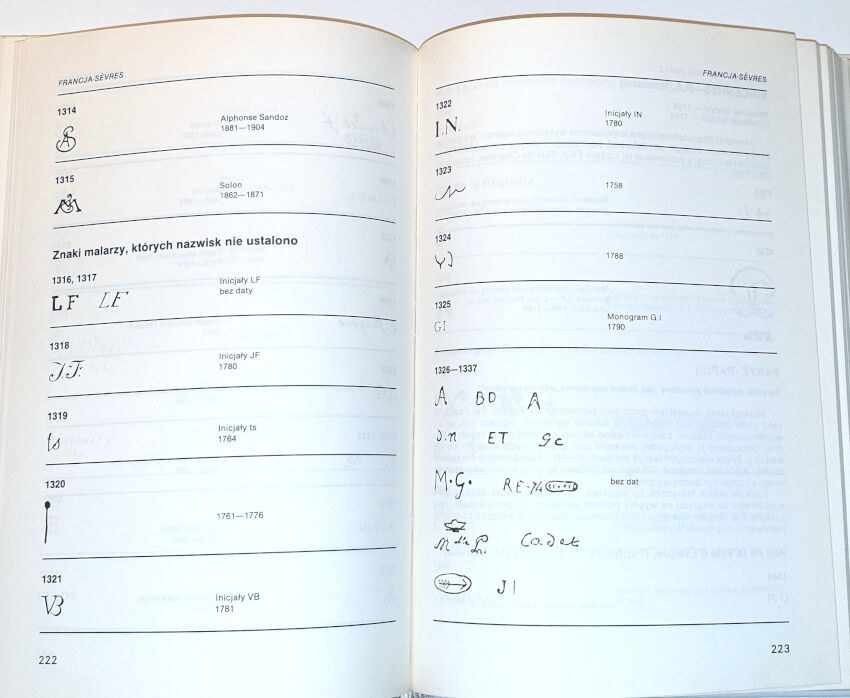 FRANCJA-SÈVRES
1314
Alphonse Sandoz
1881—1904
1315
Solon
1862—1871
Znaki malarzy, których nazwisk nie ustalono
1316, 1317
Inicjały LF
bez daty
LF LF
1318
Inicjały JF
1780
J.F.
1319
Inicjały ts
1764
ts
1320
1761—1776
1321
Inicjały VB
1781
VB
222
FRANCJA-SÈVRES
1322
Inicjały IN
1780
I.N.
1323
1758
1324
1788
1325
Monogram G.I
1790
GI
1326—1337
A BD A
J.n ET Gc
M.G. RE-74
bez dat
Cadet
JI
223